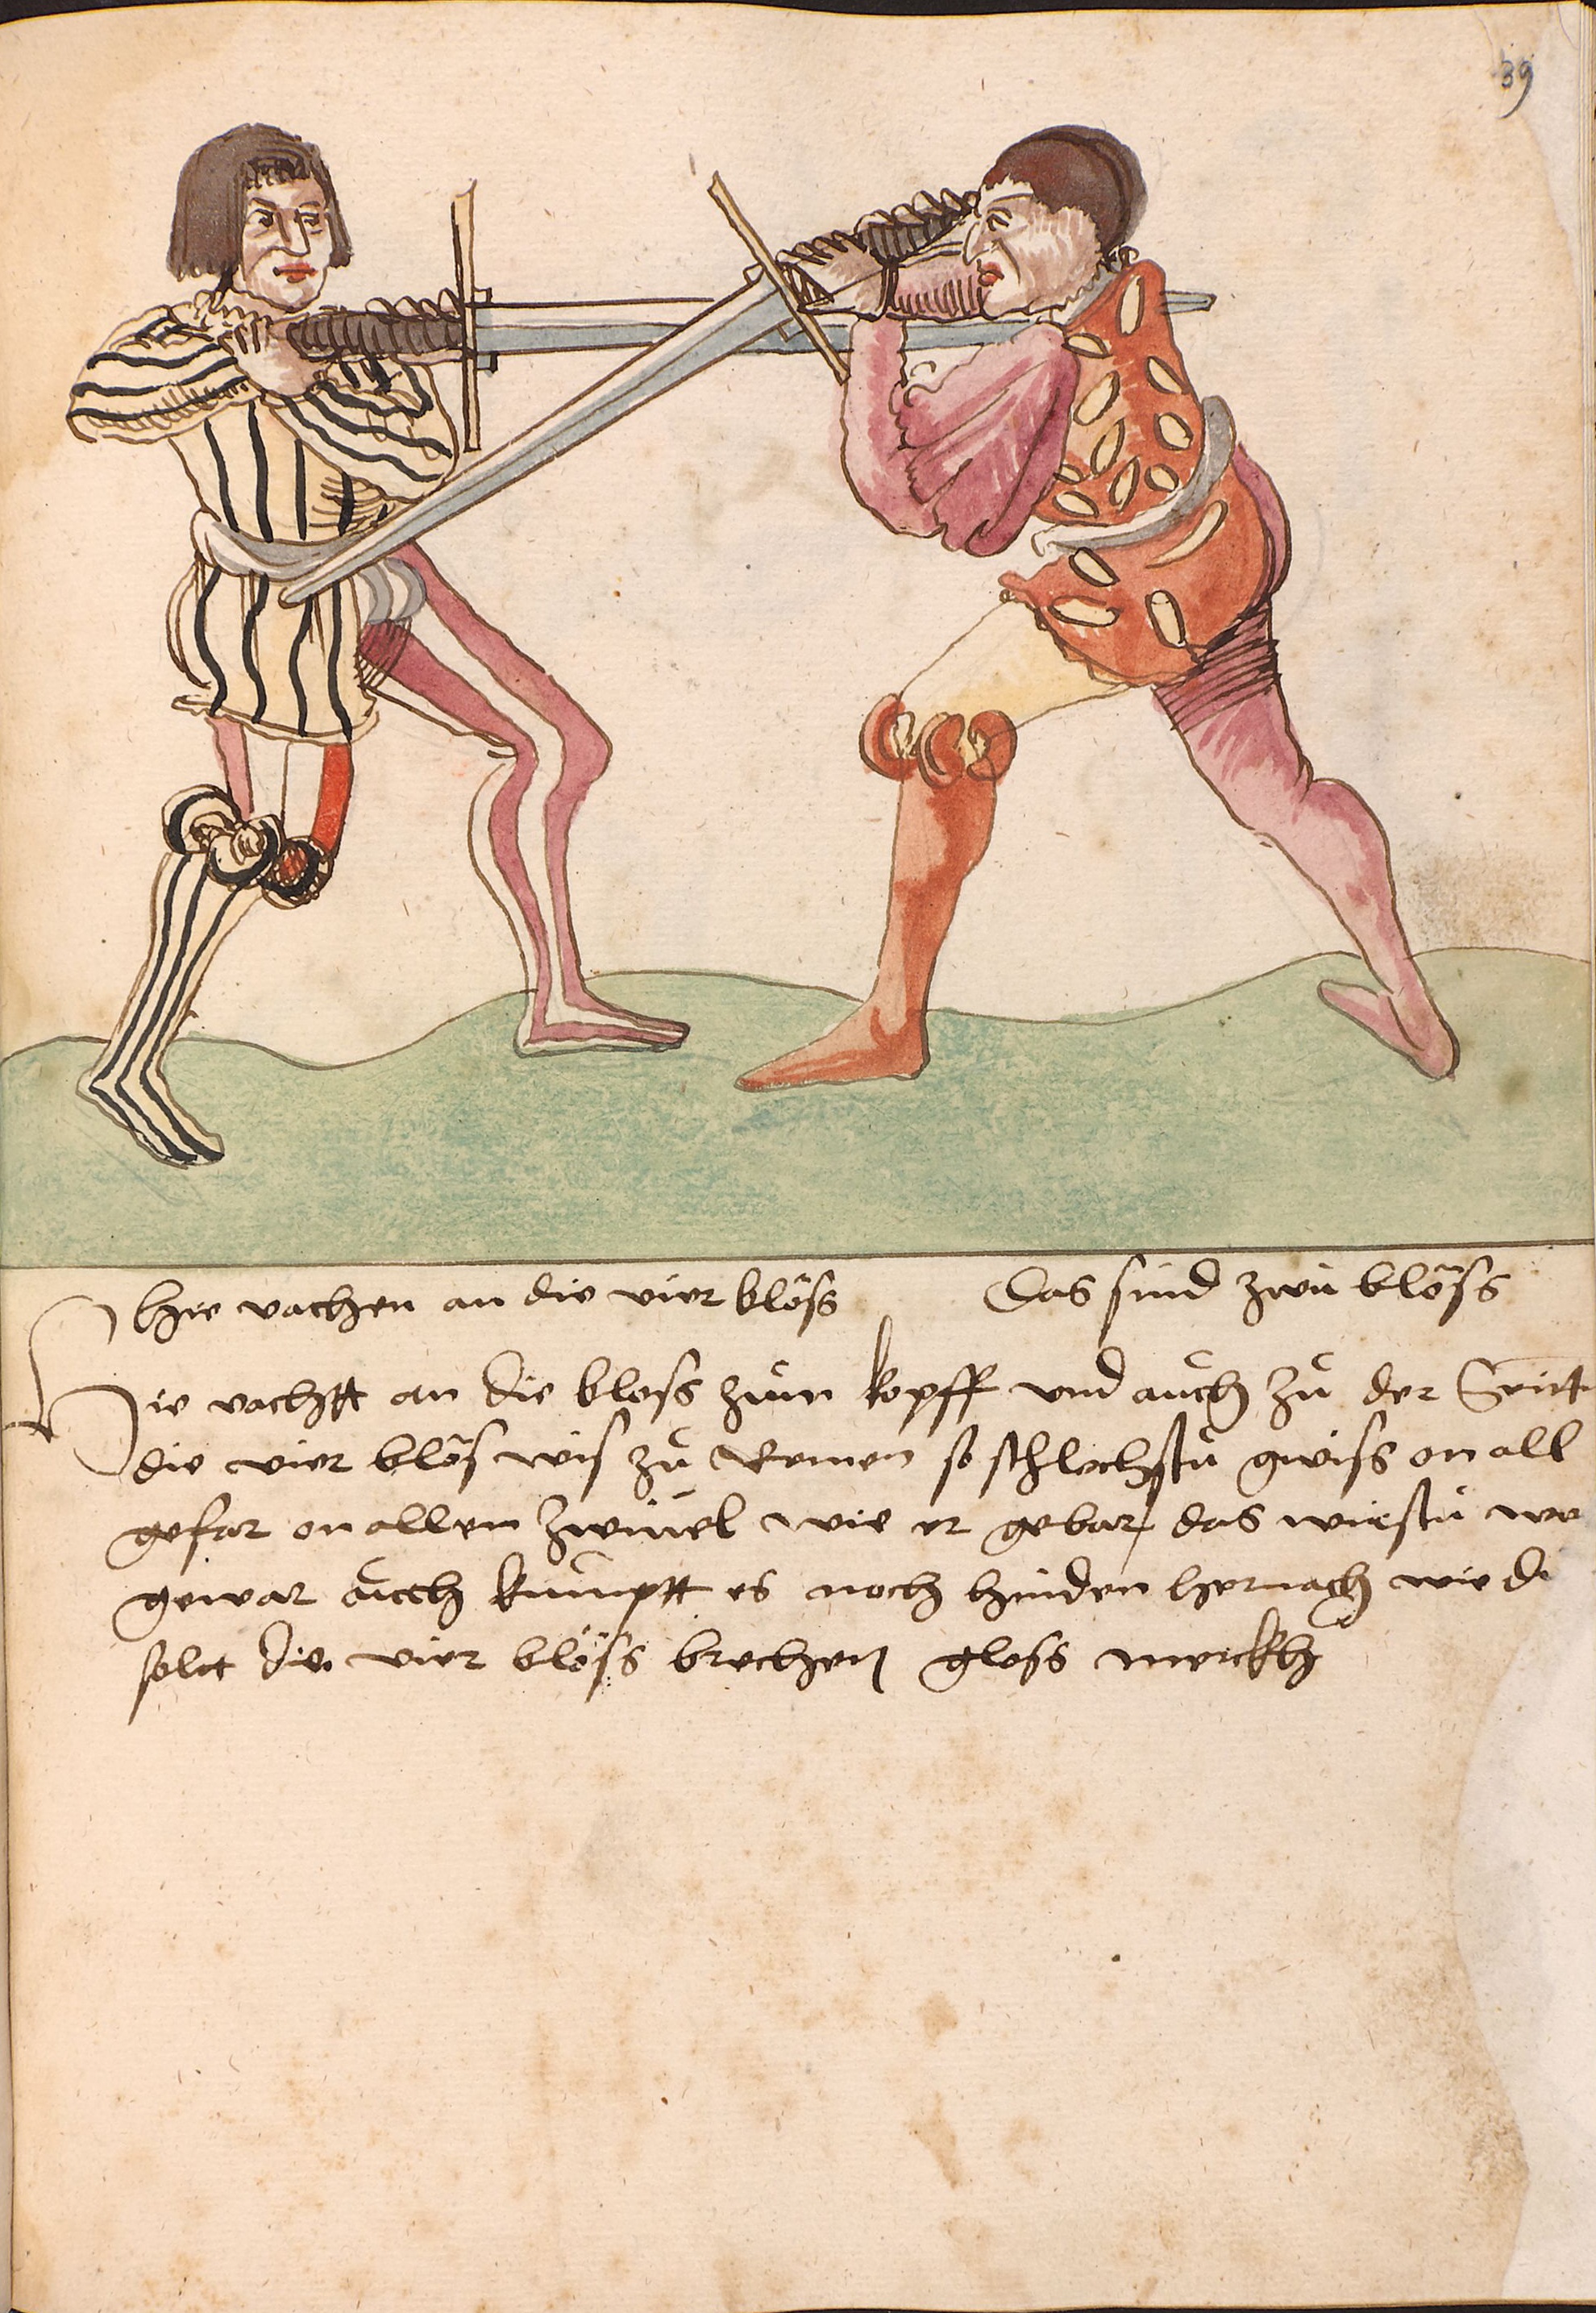 39
hie vachen an die vier blöss
Das sind zwu blöss
Hie vachtt an die bloss zum kopff vnd auch zů der
die vier blös wis zů Remen so schlechstu gwiss on all
gefar on allen zwiuel wie er gebar das wirstu
gewar auch kumptt es noch hinden hernach wie
solt die vier blöss brechen gloss merckh